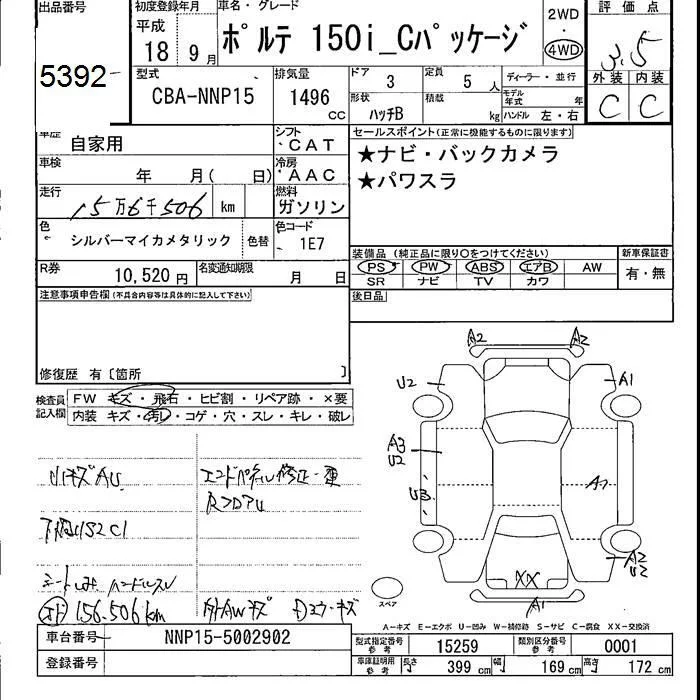 出品番号
5392
初度登録年月
平成
18 9月
車名・グレード
ポルテ 150i_Cパッケージ
2WD
・
4WD
評価点
3.5
外装 内装
C C
型式
CBA-NNP15
排気量
1496 CC
ドア 3
定員 5 人
形状 ハッチB
積載 kg
ディーラー・並行
モデル年式 年
ハンドル 左・右
車歴 自家用
シフト CAT
車検 年 月( 日)
冷房 AAC
走行 15万6千506 km
燃料 ガソリン
色 シルバーマイカメタリック 色替
色コード 1E7
R券 10,520円
名変通知期限 月 日
セールスポイント(正常に機能するものに限ります)
★ナビ・バックカメラ
★パワスラ
装備品(純正品に限り○をつけてください)
PS PW ABS エアB AW
SR ナビ TV カワ
新車保証書
有・無
後日品
注意事項申告欄(不具合内容等は具体的に記入して下さい)
修復歴 有〔箇所 〕
検査員記入欄
FW キズ・飛石・ヒビ割・リペア跡・×要
内装 キズ・汚レ・コゲ・穴・スレ・キレ・破レ
小キズAU
エンドパネル修正・
RフロアU
ハンドルスレ
156,506km
外AWキズ
A2 A2
U2 A1
A3
U2
U3
A2
U2
XX
A1
スペア
A-キズ E-エクボ U-凹み W-補修跡 S-サビ C-腐食 XX-交換済
車台番号 NNP15-5002902
登録番号
型式指定番号 参考 15259
類別区分番号 参考 0001
車庫証明用 参考 長さ 399 cm 幅 169 cm 高さ 172 cm